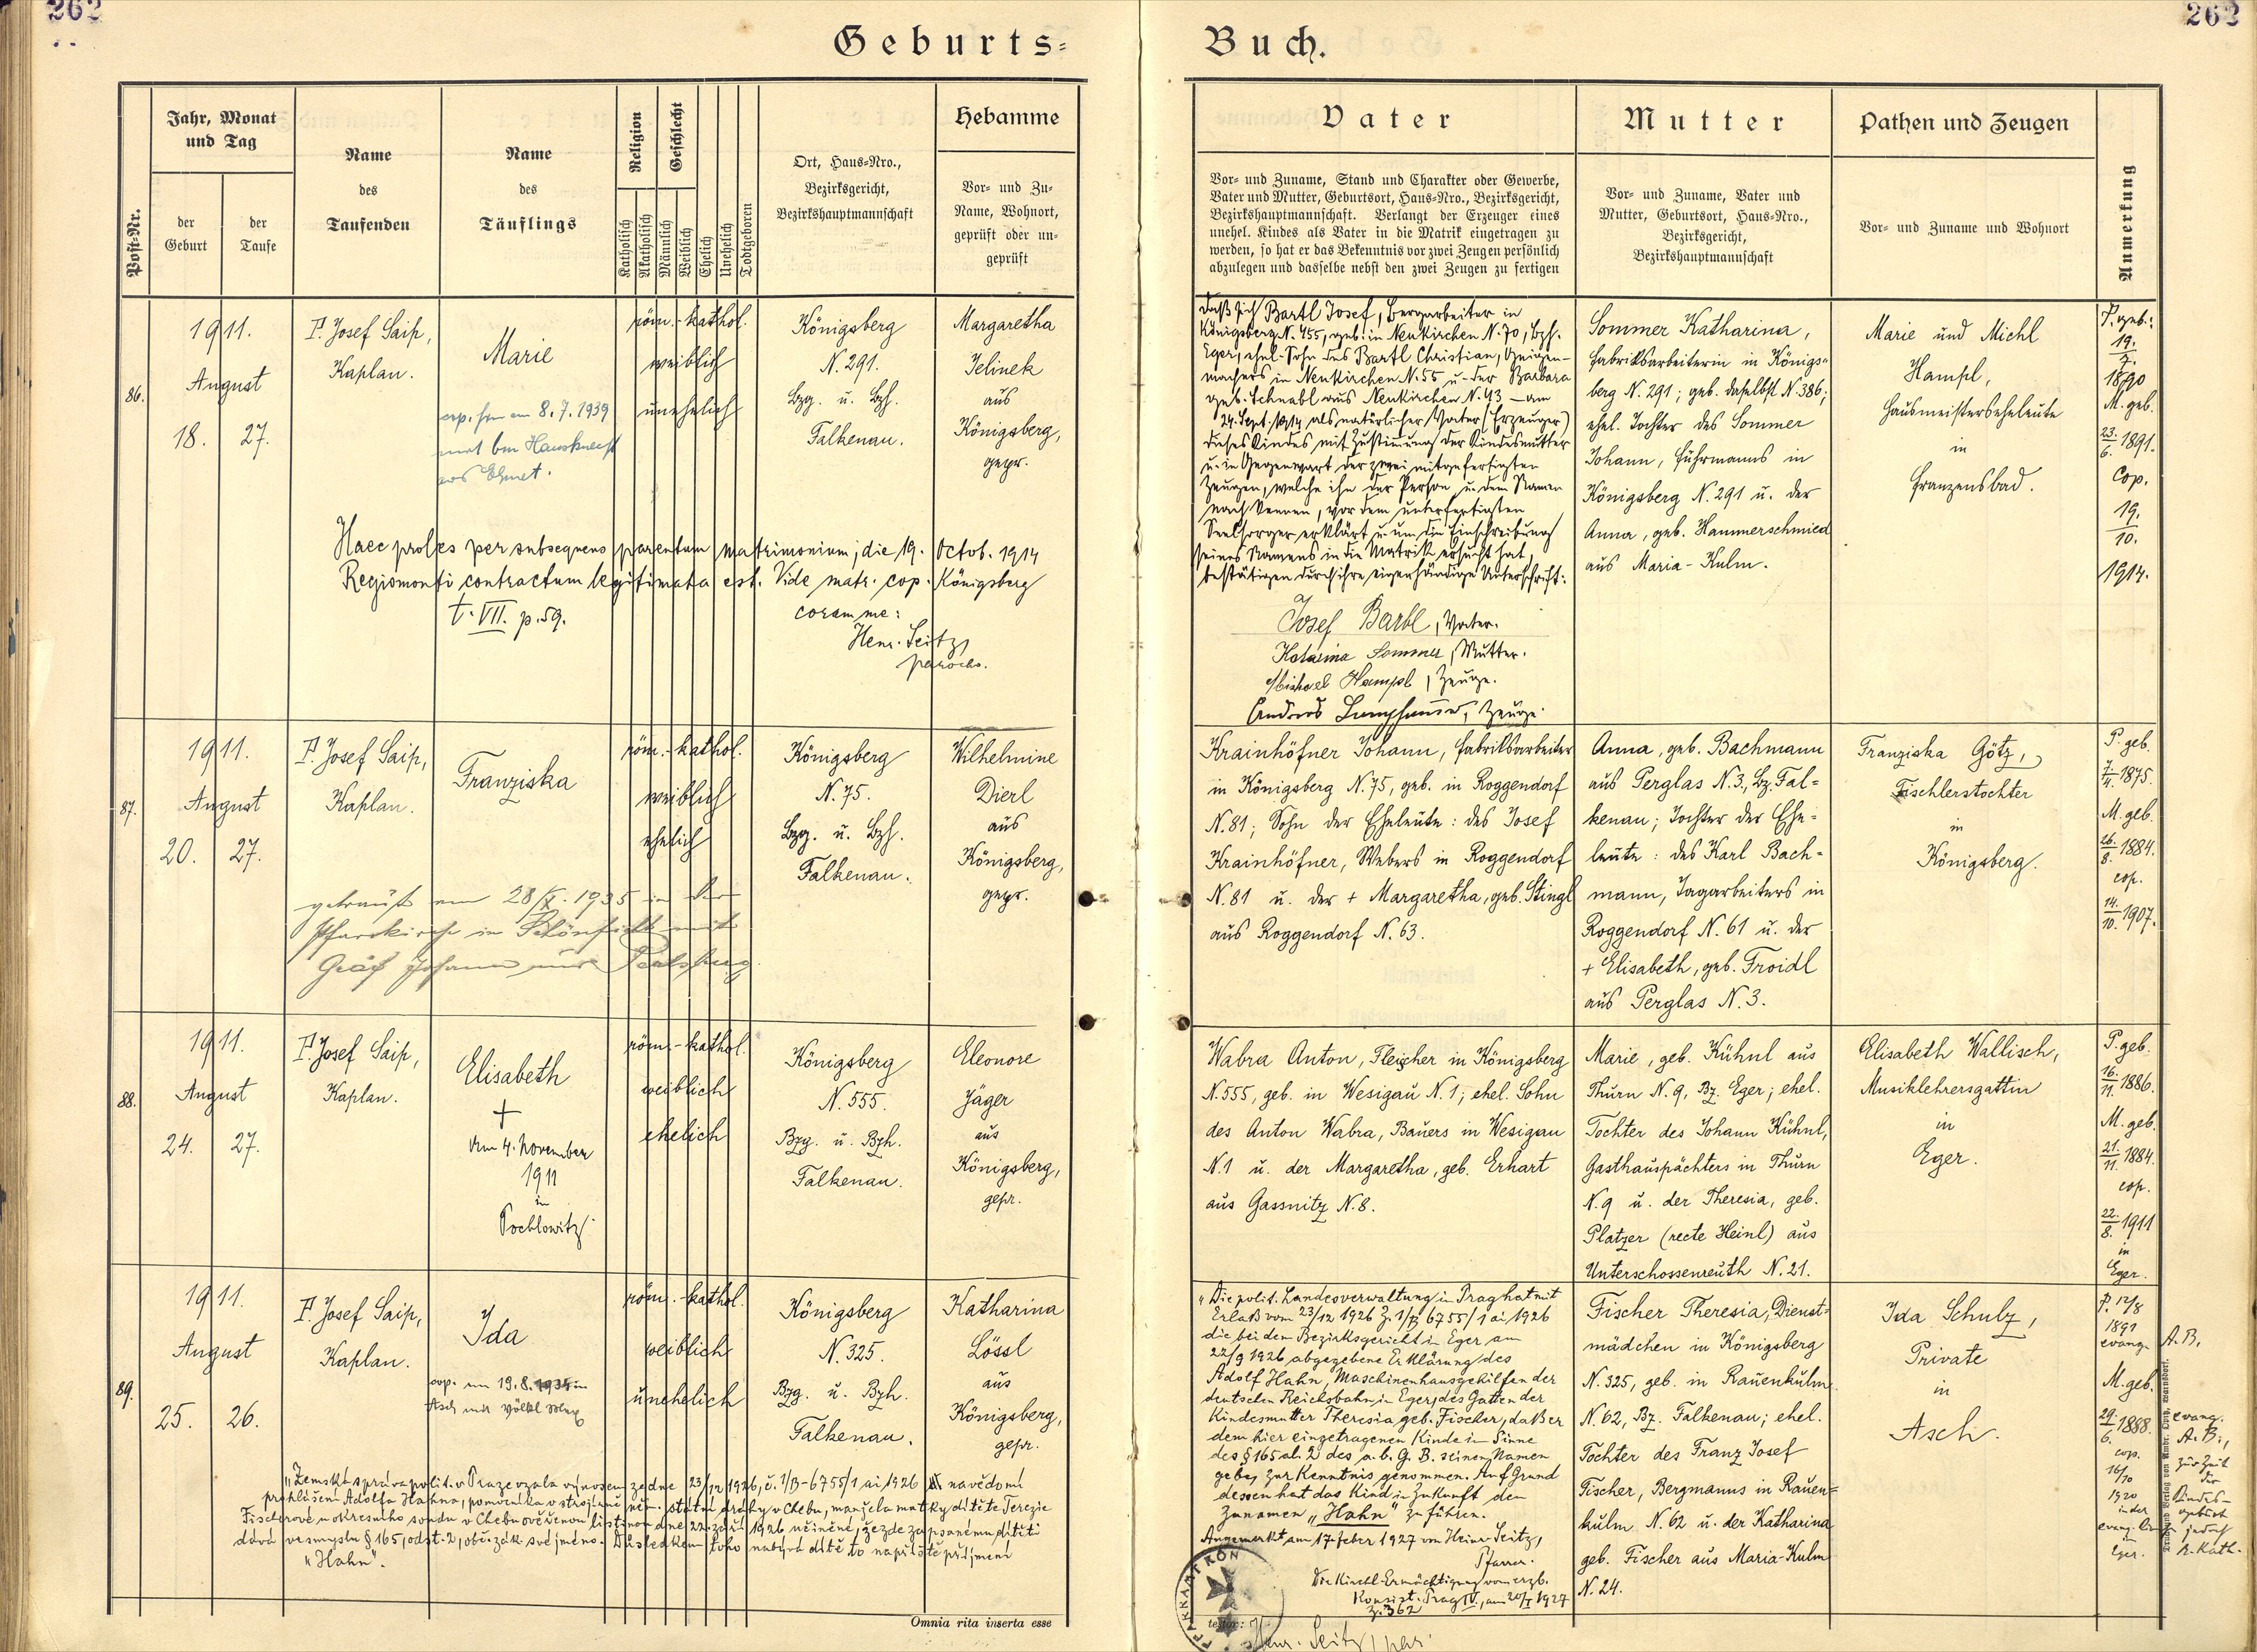 262
262
Geburts-
Buch.
Post-Nr.
Jahr, Monat
und Tag
der
Geburt
der
Taufe
Name
des
Taufenden
Name
des
Täuflings
Religion
Katholisch
Akatholisch
Geschlecht
Männlich
Weiblich
Ehelich
Unehelich
Todtgeboren
Ort, Haus-Nro.,
Bezirksgericht,
Bezirkshauptmannschaft
Hebamme
Vor- und Zu-
Name, Wohnort,
geprüft oder un-
geprüft
Vater
Vor- und Zuname, Stand und Charakter oder Gewerbe,
Vater und Mutter, Geburtsort, Haus-Nro., Bezirksgericht,
Bezirkshauptmannschaft. Verlangt der Erzeuger eines
unehel. Kindes als Vater in die Matrik eingetragen zu
werden, so hat er das Bekenntnis vor zwei Zeugen persönlich
abzulegen und dasselbe nebst den zwei Zeugen zu fertigen
Mutter
Vor- und Zuname, Vater und
Mutter, Geburtsort, Haus-Nro.,
Bezirksgericht,
Bezirkshauptmannschaft
Pathen und Zeugen
Vor- und Zuname und Wohnort
Anmerkung
86.
1911.
August
18. 27.
P. Josef Saip,
Kaplan.
Marie
cop. am 8.7.1939
röm.-kathol.
weiblich
unehelich
Königsberg
N. 291.
Bzg. u. Bzh.
Falkenau.
Margaretha
Jelinek
aus
Königsberg,
gepr.
Haec proles per subsequens parentum matrimonium, die 19. Octob. 1914
Regiomonti contractum legitimata est. Vide matr. cop. Königsberg
t. VII. p. 59.
coram me:
Henr. Seitz,
parochs.
Daß sich Bartl Josef, Bergarbeiter in
Königsberg N. 455, geb. in Neukirchen N. 70, Bzh.
Eger, ehel. Sohn des Bartl Christian, Geigen-
machers in Neukirchen N. 55 u. der Barbara
geb. Schnabl aus Neukirchen N. 43 – am
24. Sept. 1914 als natürlicher Vater (Erzeuger)
dieses Kindes mit Zustimmung der Kindesmutter
u. in Gegenwart der zwei mitgefertigten
Zeugen, welche ihn der Person u. dem Namen
nach kennen, vor dem unterfertigten
Seelsorger erklärt u. um die Einschreibung
seines Namens in die Matrik ersucht hat,
bestätigen durch ihre eigenhändige Unterschrift:
Josef Bartl, Vater.
Katarina Sommer, Mutter.
Michael Hampl, Zeuge.
Andreas Zeuge.
Sommer Katharina,
Fabriksarbeiterin in Königs-
berg N. 291; geb. daselbst N. 386;
ehel. Tochter des Sommer
Johann, Fuhrmanns in
Königsberg N. 291 u. der
Anna, geb. Hammerschmied
aus Maria-Kulm.
Marie und Michl
Hampl,
Hausmeisterseheleute
in
Franzensbad.
P. geb.:
19.
7.
1890
M. geb.
23.
6. 1891.
Cop.
19.
10.
1914.
87.
1911.
August
20. 27.
P. Josef Saip,
Kaplan.
Franziska
röm.-kathol.
weiblich
ehelich
Königsberg
N. 75.
Bzg. u. Bzh.
Falkenau.
Wilhelmine
Dierl
aus
Königsberg,
gepr.
getraut am 28/X. 1935 in der
Pfarrkirche in Schönficht mit
Gräf Johann aus
Krainhöfner Johann, Fabriksarbeiter
in Königsberg N. 75, geb. in Roggendorf
N. 81; Sohn der Eheleute: des Josef
Krainhöfner, Webers in Roggendorf
N. 81 u. der + Margaretha, geb. Stingl
aus Roggendorf N. 63.
Anna, geb. Bachmann
aus Perglas N. 3., Bz. Fal-
kenau; Tochter der Ehe-
leute: des Karl Bach-
mann, Tagarbeiters in
Roggendorf N. 61 u. der
+ Elisabeth, geb. Froidl
aus Perglas N. 3.
Franziska Götz,
Tischlerstochter
in
Königsberg.
P. geb.
7.
4. 1875.
M. geb.
26.
8. 1884.
cop.
14.
10. 1907.
88.
1911.
August
24. 27.
P. Josef Saip,
Kaplan.
Elisabeth
+
am 4. November
1911
in
Pochlowitz.
röm.-kathol.
weiblich
ehelich
Königsberg
N. 555.
Bzg. u. Bzh.
Falkenau.
Eleonore
Jäger
aus
Königsberg,
gepr.
Wabra Anton, Fleischer in Königsberg
N. 555, geb. in Wesigau N. 1; ehel. Sohn
des Anton Wabra, Bauers in Wesigau
N. 1 u. der Margaretha, geb. Erhart
aus Gassnitz N. 8.
Marie, geb. Kühnl aus
Thurn N. 9, Bz. Eger; ehel.
Tochter des Johann Kühnl,
Gasthauspächters in Thurn
N. 9 u. der Theresia, geb.
Platzer (recte Heinl) aus
Unterschossenreuth N. 21.
Elisabeth Wallisch,
Musiklehrersgattin
in
Eger.
P. geb.
16.
11. 1886.
M. geb.
21.
11. 1884.
cop.
22.
8. 1911
in
Eger.
89.
1911.
August
25. 26.
P. Josef Saip,
Kaplan.
Ida
cop. am 19.8. in
Asch mit Völkl Max
röm.-kathol.
weiblich
unehelich
Königsberg
N. 325.
Bzg. u. Bzh.
Falkenau.
Katharina
Lössl
aus
Königsberg,
gepr.
„Zemská správa polit. v Praze vzala výnosem ze dne 23/12 1926, č. 1/B-6755/1 ai 1926 na vědomí
prohlášení Adolfa Hahna, pomocníka v strojírně něm. státní dráhy v Chebu, manžela matky dítěte Terezie
Fischerové u okresního soudu v Chebu ověřenou listinou dne 22. září 1926 učiněné, že zde zapsanému dítěti
dává ve smyslu § 165, odst. 2, obč. zák. své jméno. Důsledkem toho nabývá dítě to napříště příjmení
„Hahn".
„Die polit. Landesverwaltung in Prag hat mit
Erlaß vom 23/12 1926 Z. 1/B 6755/1 ai 1926
die bei dem Bezirksgericht in Eger am
22/9 1926 abgegebene Erklärung des
Adolf Hahn, Maschinenhausgehilfen der
deutschen Reichsbahn in Eger, des Gatten der
Kindesmutter Theresia geb. Fischer, daß er
dem hier eingetragenen Kinde im Sinne
des § 165 al. 2 des a. b. G. B. seinen Namen
gebe, zur Kenntnis genommen. Auf Grund
dessen hat das Kind in Zukunft den
Zunamen „Hahn" zu führen.
Angemerkt am 17. Feber 1927 von Heinr. Seitz,
Pfarrer.
Die kirchl. Ermächtigung vom erzb.
Konsist. Prag IV., am 20/I 1927
Z. 362
Fischer Theresia, Dienst-
mädchen in Königsberg
N. 325, geb. in Rauenkulm
N. 62, Bz. Falkenau; ehel.
Tochter des Franz Josef
Fischer, Bergmanns in Rauen-
kulm N. 62 u. der Katharina
geb. Fischer aus Maria-Kulm
N. 24.
Ida Schulz,
Private
in
Asch.
P. 12/8
1891
evang. A. B.
M. geb.
29.
6. 1888.
cop.
16/10
1920
in der
evang.
Eger.
evang.
A. B.,
zur Zeit
der
Kindes-
geburt
jedoch
r. kath.
Omnia rita inserta esse
testor:
Henr. Seitz, par.